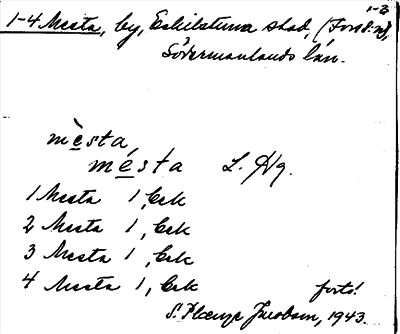 1-3
1-4 Mesta, by, Eskilstuna stad, (Fors s:n),
Södermanlands län.
mèsta,
mésta L. Hg.
1 Mesta 1, Eek
2 Mesta 1, Eek
3 Mesta 1, Eek
4 Mesta 1, Eek forts!
S. Jacobson, 1943.